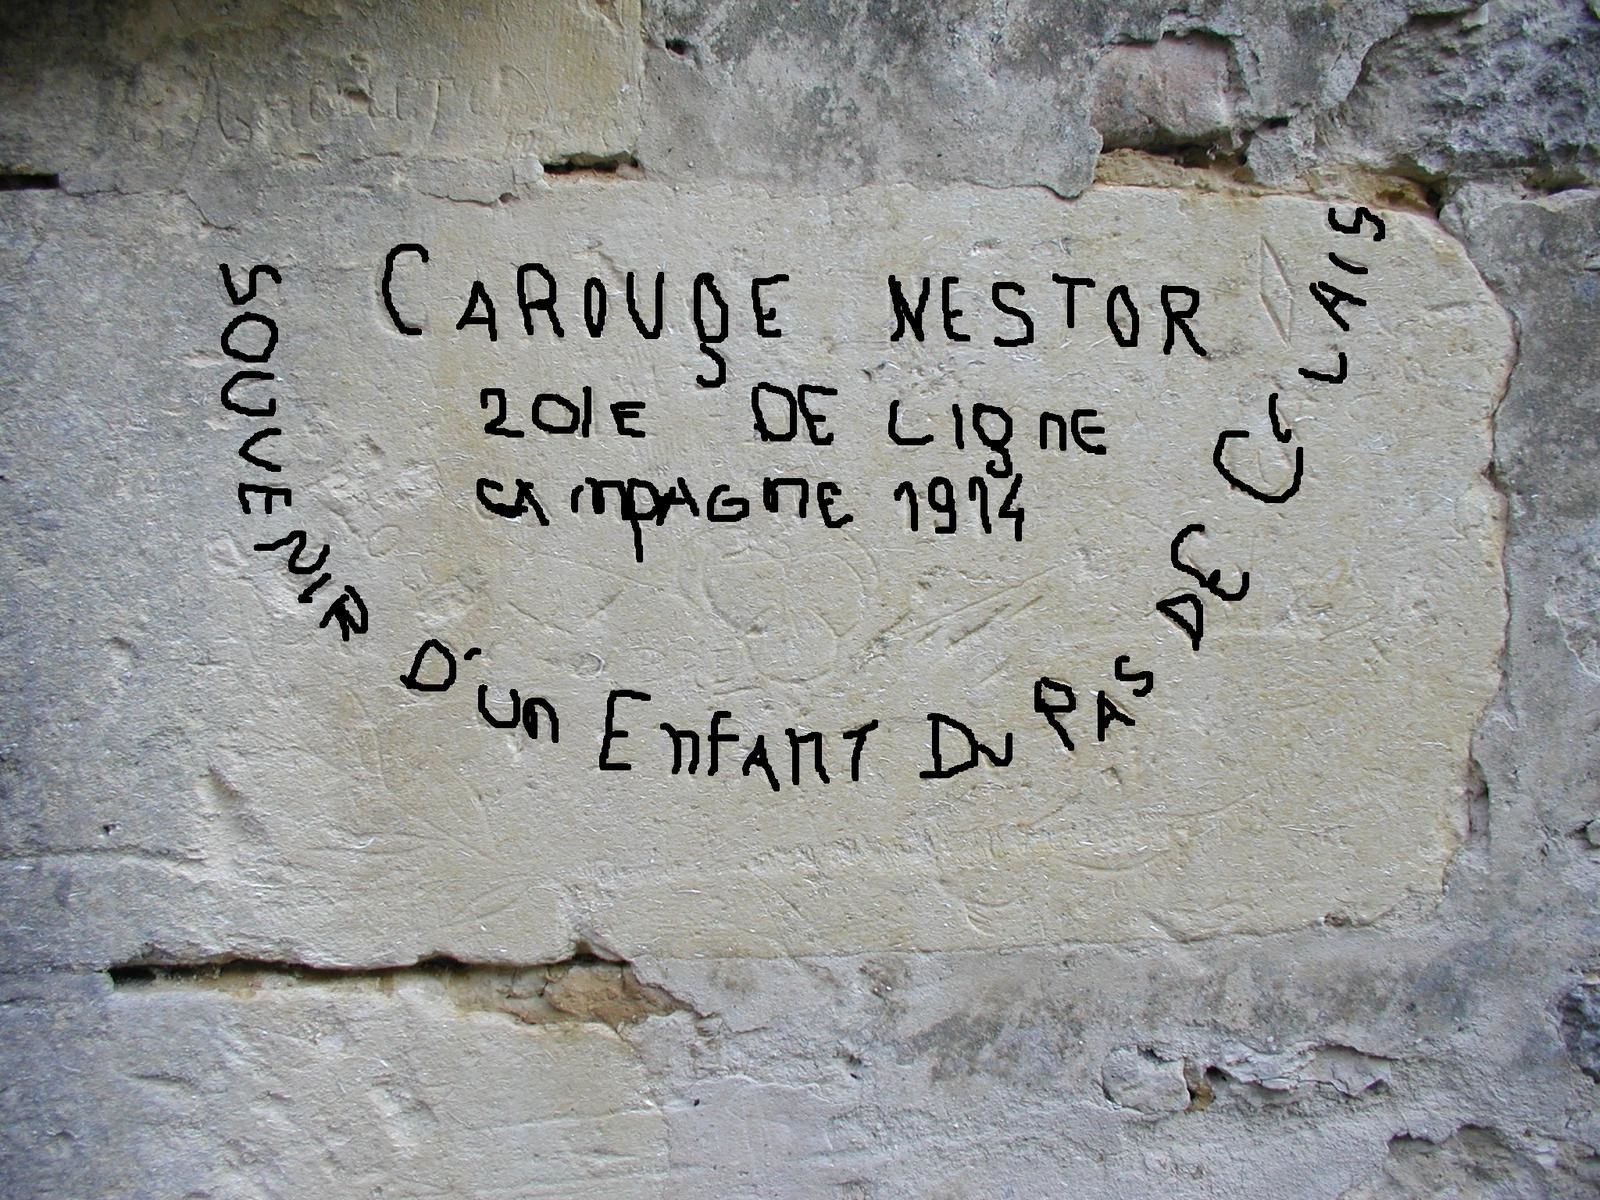 CAROUgE NESTOR
201E DE LIgnE
CAmpAGnE 1914
SOUVENIR D'un EnfAnT Du PAS DE C LAIS